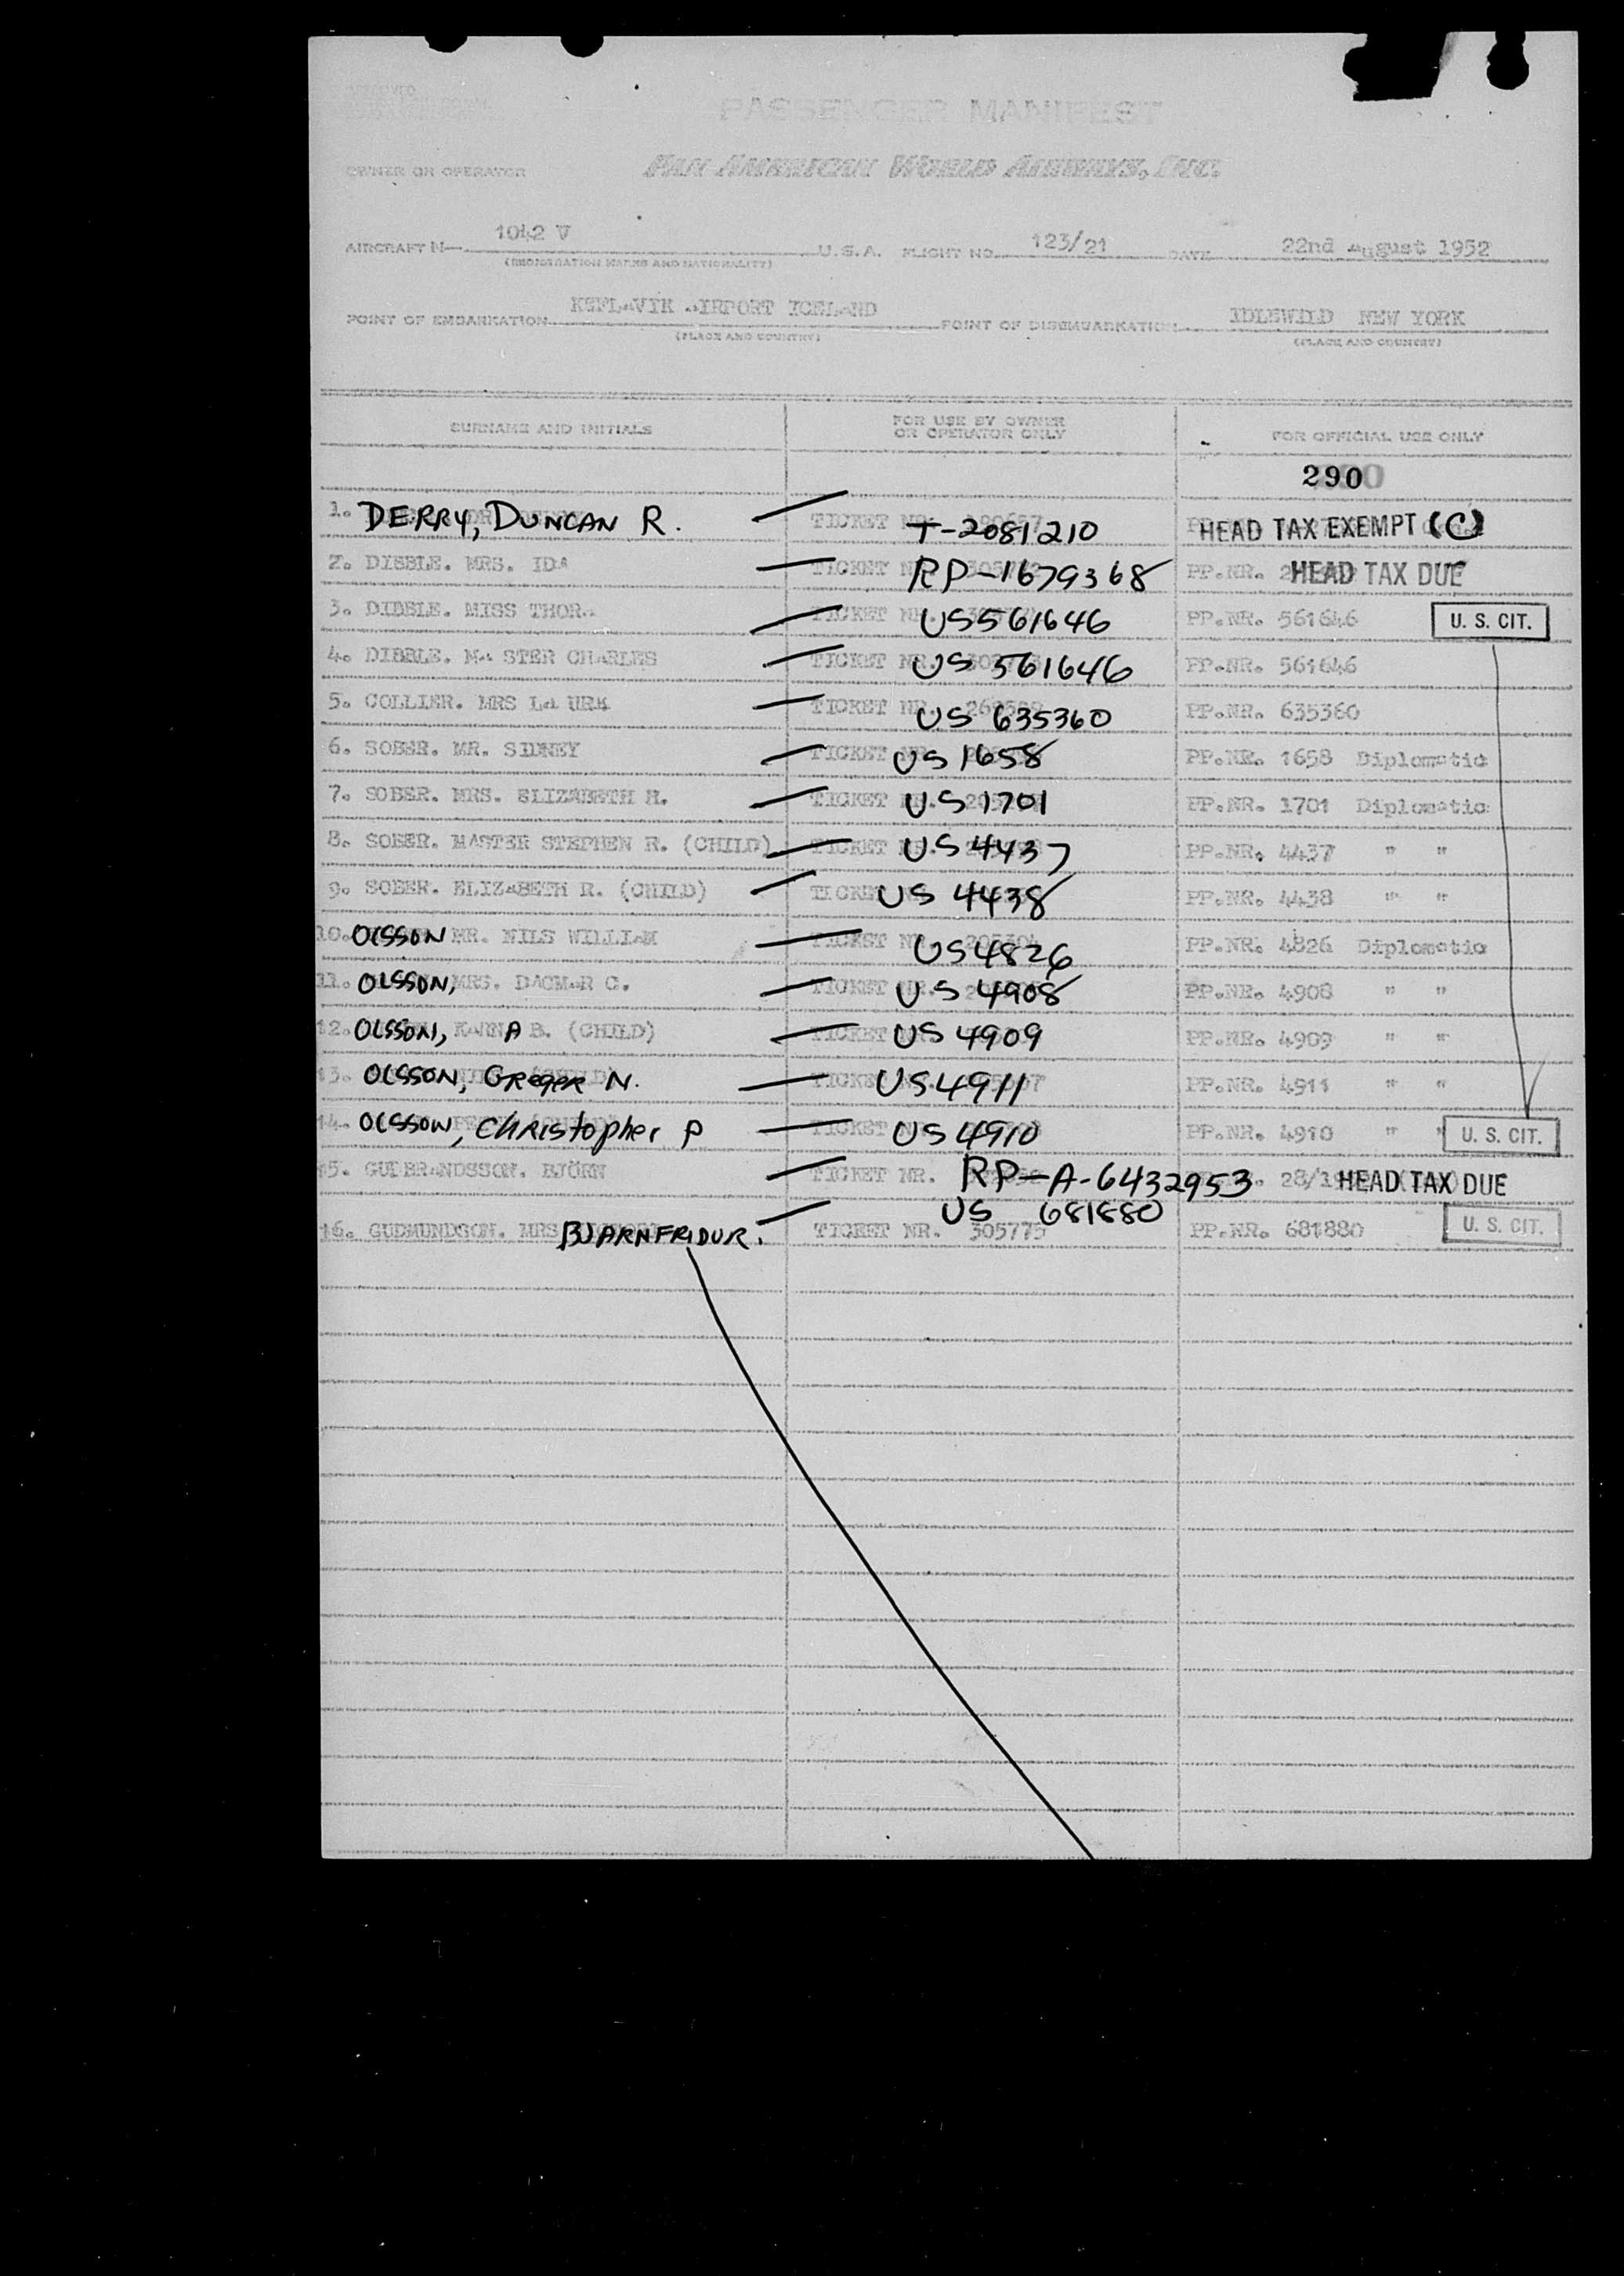 APPROVED
PASSENGER MANIFEST
OWNER OR OPERATOR PAN AMERICAN WORLD AIRWAYS, INC.
AIRCRAFT N— 1042 V U.S.A. FLIGHT NO. 123/21 DATE 22nd August 1952
(REGISTRATION MARKS AND NATIONALITY)
POINT OF EMBARKATION KEFLAVIK AIRPORT ICELAND POINT OF DISEMBARKATION IDLEWILD NEW YORK
(PLACE AND COUNTRY) (PLACE AND COUNTRY)
SURNAME AND INITIALS FOR USE BY OWNER OR OPERATOR ONLY FOR OFFICIAL USE ONLY
290
1. DERRY, DUNCAN R. TICKET NR. T-2081210 HEAD TAX EXEMPT (C)
2. DIBBLE. MRS. IDA TICKET NR. RP-1679368 PP.NR. HEAD TAX DUE
3. DIBBLE. MISS THORA TICKET NR. US561646 PP.NR. 561646 U. S. CIT.
4. DIBBLE. MASTER CHARLES TICKET NR. US 561646 PP.NR. 561646
5. COLLIER. MRS LAURA TICKET NR. US 635360 PP.NR. 635360
6. SOBER. MR. SIDNEY TICKET NR. US 1658 PP.NR. 1658 Diplomatic
7. SOBER. MRS. ELIZABETH H. TICKET NR. US 1701 PP.NR. 1701 Diplomatic
8. SOBER. MASTER STEPHEN R. (CHILD) TICKET NR. US 4437 PP.NR. 4437 " "
9. SOBER. ELIZABETH R. (CHILD) TICKET US 4438 PP.NR. 4438 " "
10. OLSSON MR. NILS WILLIAM TICKET NR. US4826 PP.NR. 4826 Diplomatic
11. OLSSON, MRS. DAGMAR C. TICKET NR. US 4908 PP.NR. 4908 " "
12. OLSSON, KARNA B. (CHILD) TICKET US 4909 PP.NR. 4909 " "
13. OLSSON, Greger N. TICKET US4911 PP.NR. 4911 " "
14. OLSSON, Christopher P TICKET US 4910 PP.NR. 4910 " " U. S. CIT.
15. GUDBRANDSSON. BJÖRN TICKET NR. RP-A-6432953 HEAD TAX DUE
16. GUDMUNDSON. MRS BJARNFRIDUR. TICKET NR. 305775 US 681880 PP.NR. 681880 U. S. CIT.